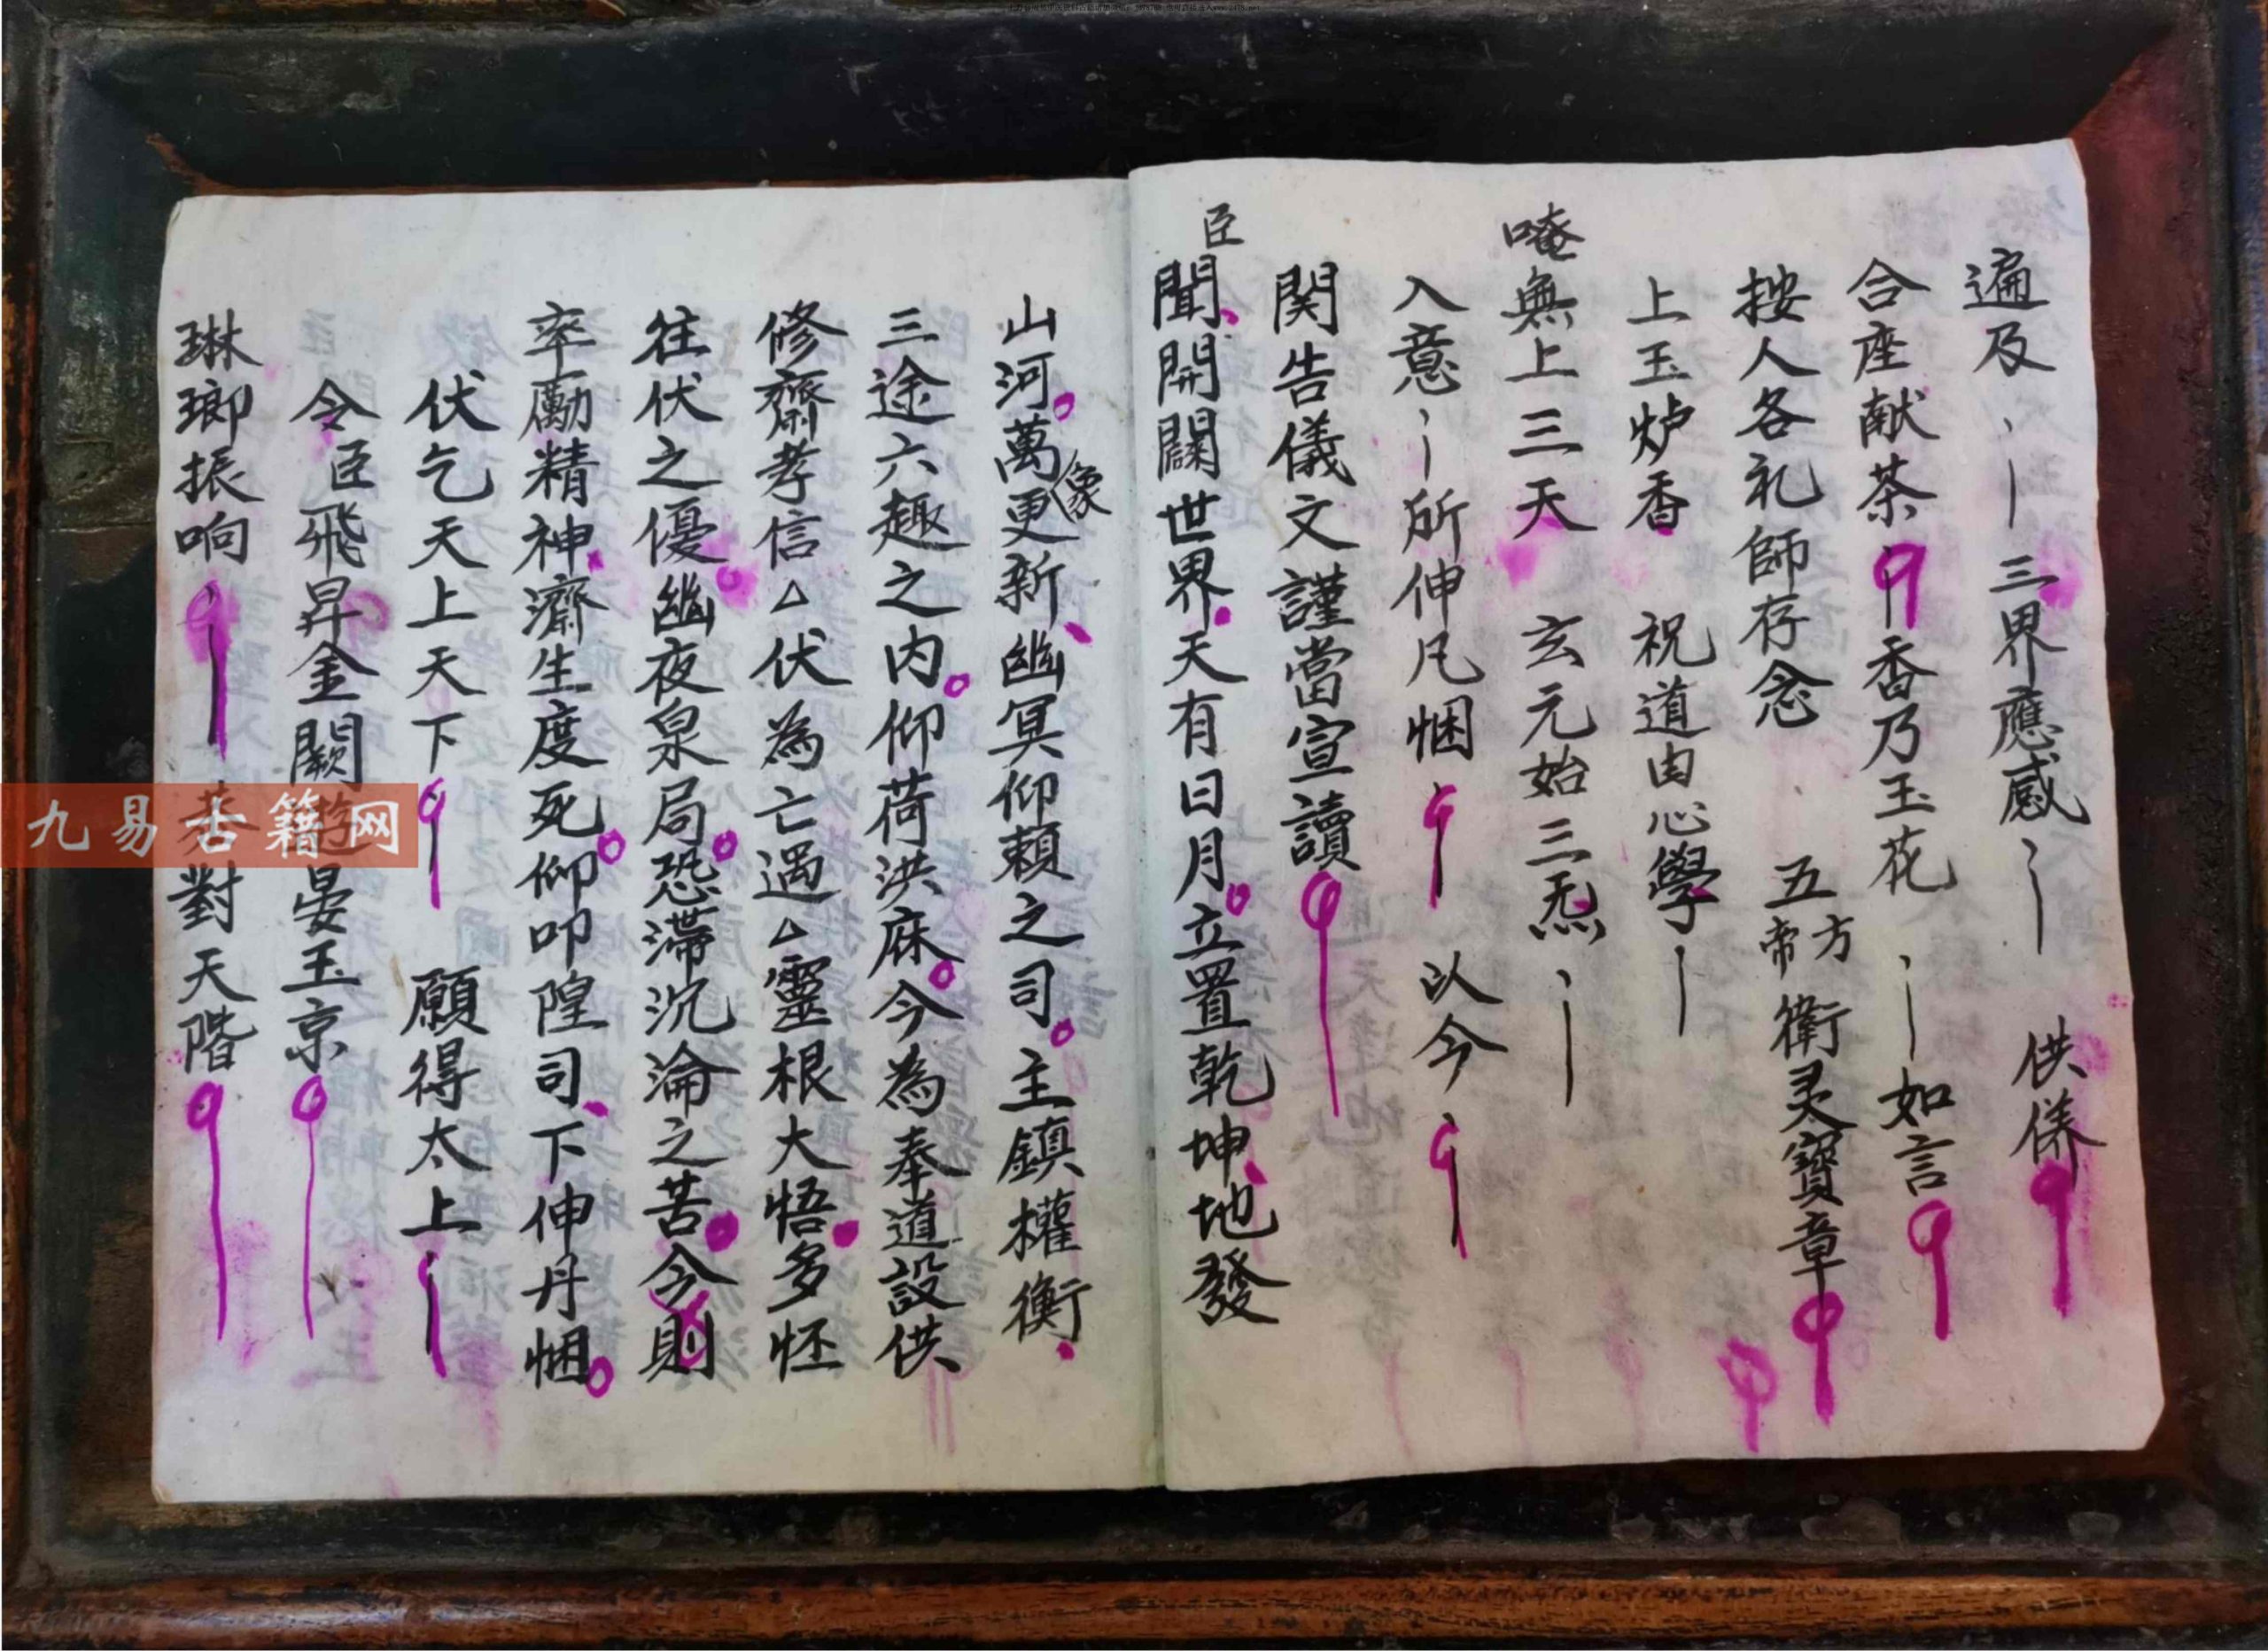 遍及 三界應感 供俻
合座献茶 香乃玉花 如言
按人各礼師存念 五方帝衛灵寶章
上玉炉香 祝道由心學
唵無上三天 玄元始三炁
入意 所伸凡悃 以今
関告儀文謹當宣讀
臣聞開闢世界天有日月立置乾坤地發
山河萬像更新幽冥仰賴之司主鎮權衡
三途六趣之内仰荷洪庥今為奉道設供
修齋孝信△伏為亡過△靈根大悟多怌
往伏之優幽夜泉局恐滯沉淪之苦今則
率勵精神濟生度死仰叩隍司下伸丹悃
伏乞天上天下 願得太上
令臣飛昇金闕遊晏玉京
琳瑯振响 對天階
九易古籍网